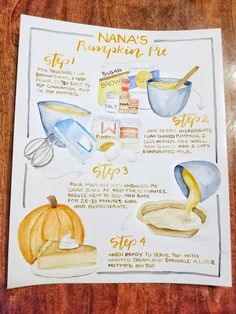 NANA'S
Pumpkin Pie
Step 1
MIX TOGETHER 1 CUP
BROWN SUGAR, 1 TBSP
FLOUR, 1/2 TSP SALT, 1/2
TSP CINNAMON, AND
1/4 TSP NUTMEG.
SUGAR
BROWN
SALT
Step 2
ADD TO DRY INGREDIENTS,
1 CAN COOKED PUMPKIN, 2
EGGS BEATEN. MIX WELL.
THEN SLOWLY ADD 2 CUPS
EVAPORATED MILK.
PUMPKIN
Step 3
POUR MIXTURE INTO UNBAKED PIE
CRUST. BAKE AT 450° FOR 10 MINUTES.
REDUCE HEAT TO 300° AND BAKE
FOR 25-30 MINUTES. COOL
AND REFRIGERATE.
Step 4
WHEN READY TO SERVE, TOP WITH
WHIPPED CREAM AND SPRINKLE A LITTLE
NUTMEG ON TOP!